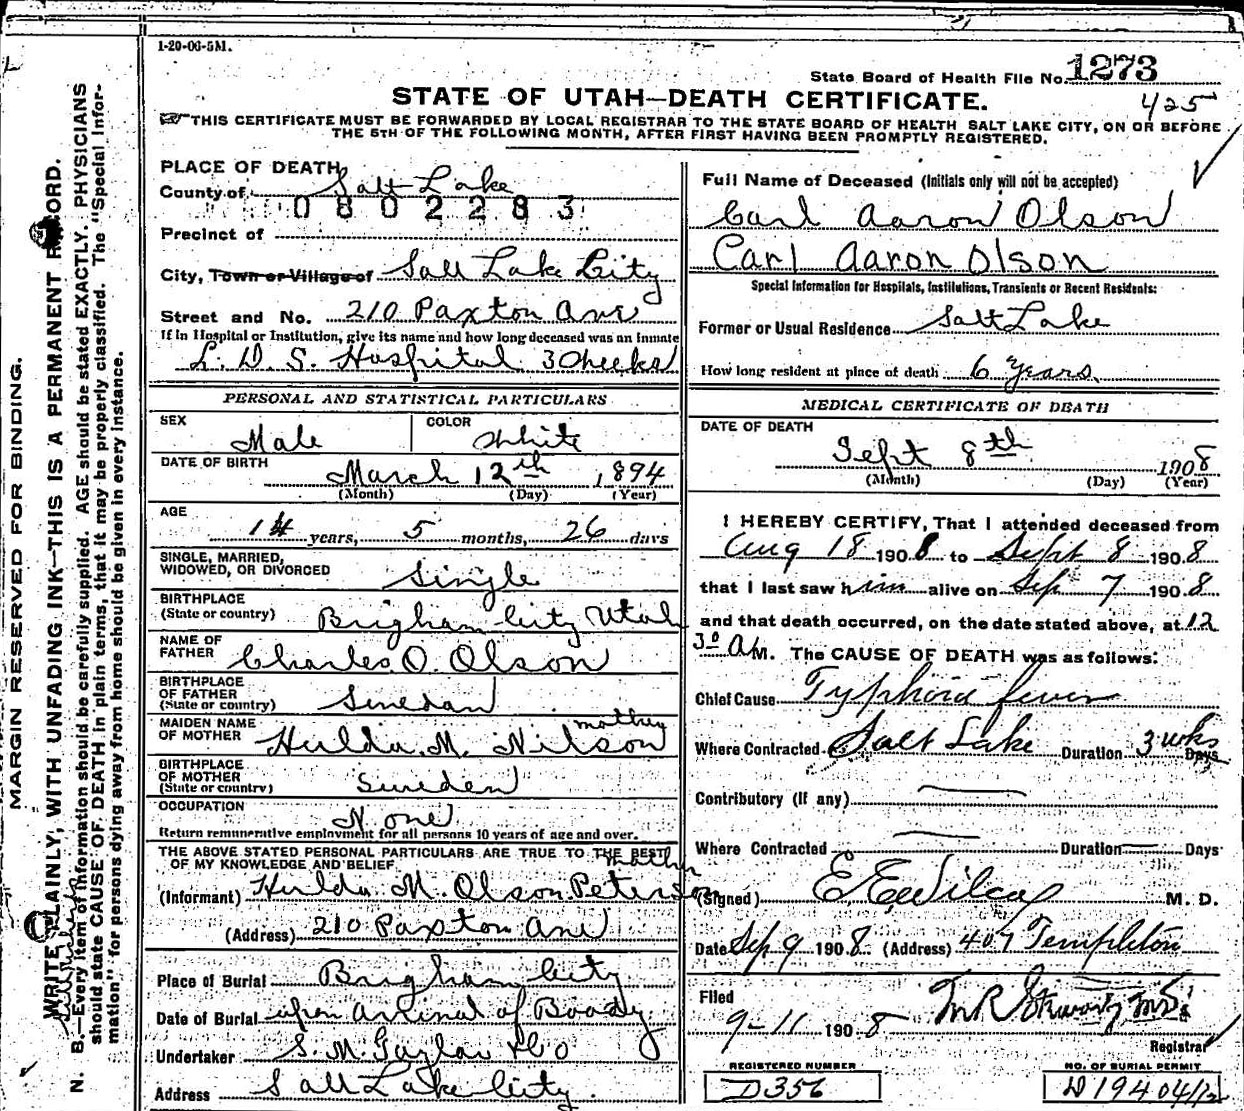 1-20-06-5M.
State Board of Health File No. 1273
STATE OF UTAH—DEATH CERTIFICATE.
425
THIS CERTIFICATE MUST BE FORWARDED BY LOCAL REGISTRAR TO THE STATE BOARD OF HEALTH SALT LAKE CITY, ON OR BEFORE
THE 5TH OF THE FOLLOWING MONTH, AFTER FIRST HAVING BEEN PROMPTLY REGISTERED.
PLACE OF DEATH
County of Salt Lake
0802283
Precinct of
City, Town or Village of Salt Lake City
Street and No. 210 Paxton Ave
If in Hospital or Institution, give its name and how long deceased was an inmate
L. D. S. Hospital 3 Weeks
PERSONAL AND STATISTICAL PARTICULARS
SEX Male
COLOR White
DATE OF BIRTH March 12th 1894
(Month) (Day) (Year)
AGE
14 years, 5 months, 26 days
SINGLE, MARRIED,
WIDOWED, OR DIVORCED Single
BIRTHPLACE
(State or country) Brigham City Utah
NAME OF
FATHER Charles O. Olson
BIRTHPLACE
OF FATHER
(State or country) Sweden
MAIDEN NAME
OF MOTHER Hulda M. Nilson mother
BIRTHPLACE
OF MOTHER
(State or country) Sweden
OCCUPATION None
Return remunerative employment for all persons 10 years of age and over.
THE ABOVE STATED PERSONAL PARTICULARS ARE TRUE TO THE BEST
OF MY KNOWLEDGE AND BELIEF mother
(Informant) Hulda M. Olson Peterson
(Address) 210 Paxton Ave
Place of Burial Brigham City
Date of Burial upon arrival of Boody
Undertaker S. M. Taylor & Co
Address Salt Lake City.
Full Name of Deceased (Initials only will not be accepted)
Carl Aaron Olson
Carl Aaron Olson
Special Information for Hospitals, Institutions, Transients or Recent Residents:
Former or Usual Residence Salt Lake
How long resident at place of death 6 Years
MEDICAL CERTIFICATE OF DEATH
DATE OF DEATH
Sept 8th 1908
(Month) (Day) (Year)
I HEREBY CERTIFY, That I attended deceased from
Aug 18 1908 to Sept 8 1908
that I last saw him alive on Sep 7 1908
and that death occurred, on the date stated above, at 12
30 A M. The CAUSE OF DEATH was as follows:
Chief Cause Typhoid fever
Where Contracted Salt Lake Duration 3 wks Days
Contributory (if any)
Where Contracted Duration Days
(Signed) E E Wilcox M. D.
Date Sep 9 1908 (Address) 407 Templeton
Filed
9-11 1908
Registrar
REGISTERED NUMBER
D356
NO. OF BURIAL PERMIT
MARGIN RESERVED FOR BINDING.
WRITE PLAINLY, WITH UNFADING INK—THIS IS A PERMANENT RECORD.
N. B.—Every item of information should be carefully supplied. AGE should be stated EXACTLY. PHYSICIANS
should state CAUSE OF DEATH in plain terms, that it may be properly classified. The "Special Infor-
mation" for persons dying away from home should be given in every instance.